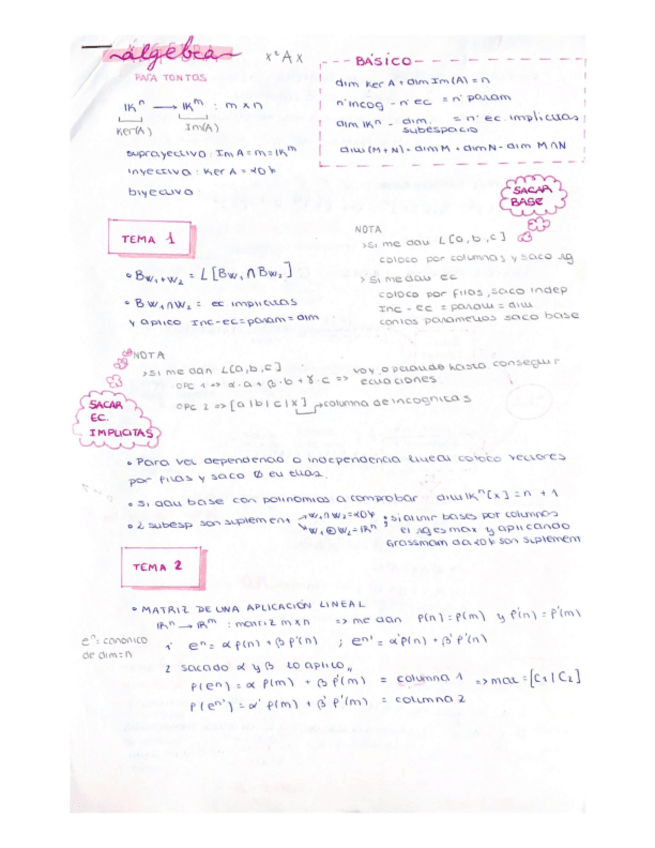 álgebra
xᵗAx
PARA TONTOS
IKⁿ → IKᵐ : m x n
Ker(A) Im(A)
suprayectiva : Im A = m = IKᵐ
inyectiva : Ker A = {0}
biyectiva
BÁSICO
dim Ker A + dim Im(A) = n
nºincog - nº ec = nº param
dim IKⁿ - dim. subespacio = nº ec. implicitas
dim (M + N) = dim M + dim N - dim M ∩ N
SACAR
BASE
TEMA 1
• B w₁+w₂ = L [Bw₁ ∩ Bw₂]
• B w₁∩w₂ = ec implicitas
y aplico Inc-ec=param=dim
NOTA
> Si me dan L[a,b,c]
coloco por columnas y saco rg
> Si me dan ec
coloco por filas, saco indep
Inc - ec = param = dim
con los parametros saco base
NOTA
> Si me dan L[a,b,c]
OPC 1 => α·a + β·b + γ·c => voy operando hasta conseguir
ecuaciones
OPC 2 => [a|b|c|x] → columna de incognitas
SACAR
EC.
IMPLICITAS
• Para ver dependencia o independencia lineal coloco vectores
por filas y saco 0 en ellas.
• Si dan base con polinomios a comprobar dim IKⁿ[x] = n + 1
• 2 subesp son suplement → w₁∩w₂={0} ; si al unir bases por columnas
→ w₁⊕w₂=IRⁿ ; el rg es max y aplicando
Grassmam da {0} son suplement
TEMA 2
• MATRIZ DE UNA APLICACIÓN LINEAL
IRⁿ → IRᵐ : matriz m x n => me dan P(n) = P(m) y P'(n) = P'(m)
eⁿ: canonico
de dim=n
1º eⁿ = α P(n) + β P'(n) ; eⁿ' = α'P(n) + β' P'(n)
2 sacado α y β lo aplico,,
P(eⁿ) = α P(m) + β P'(m) = columna 1 => mat = [C₁ | C₂]
P(eⁿ') = α' P(m) + β' P'(m) = columna 2